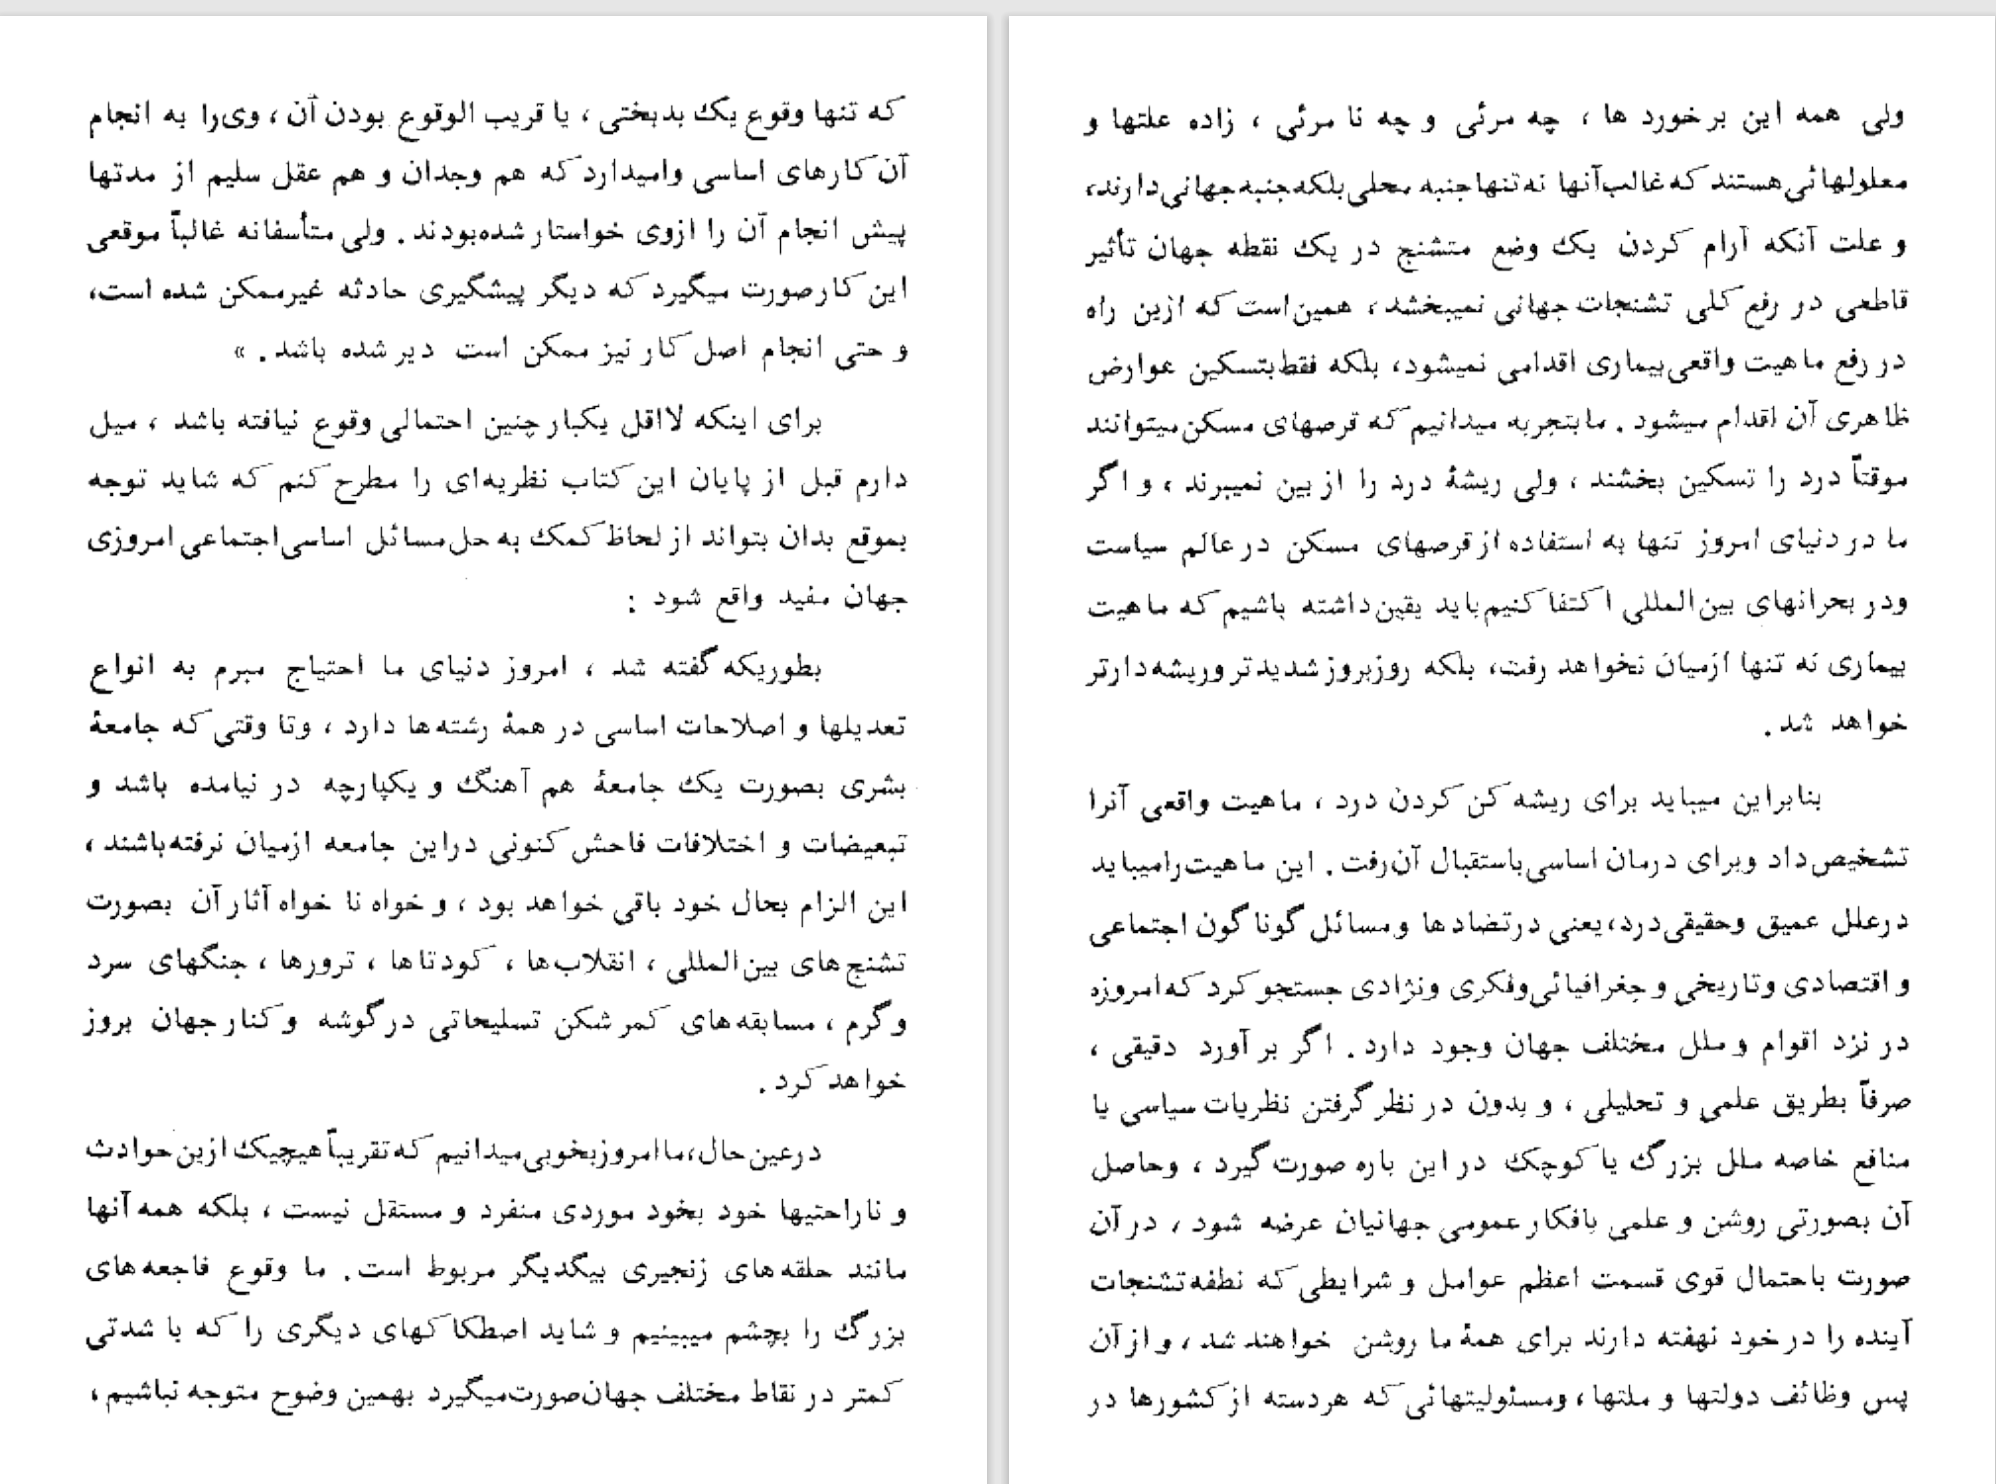 که تنها وقوع یک بدبختی ، یا قریب الوقوع بودن آن ، وی‌را به انجام
آن کارهای اساسی وامیدارد که هم وجدان و هم عقل سلیم از مدتها
پیش انجام آن را ازوی خواستار شده‌بودند . ولی متأسفانه غالباً موقعی
این کار صورت میگیرد که دیگر پیشگیری حادثه غیرممکن شده است،
و حتی انجام اصل کار نیز ممکن است دیر شده باشد . »
برای اینکه لااقل یکبار چنین احتمالی وقوع نیافته باشد ، میل
دارم قبل از پایان این کتاب نظریه‌ای را مطرح کنم که شاید توجه
بموقع بدان بتواند از لحاظ کمک به حل مسائل اساسی اجتماعی امروزی
جهان مفید واقع شود :
بطوریکه گفته شد ، امروز دنیای ما احتیاج مبرم به انواع
تعدیلها و اصلاحات اساسی در همۀ رشته‌ها دارد ، وتا وقتی که جامعۀ
بشری بصورت یک جامعۀ هم آهنگ و یکپارچه در نیامده باشد و
تبعیضات و اختلافات فاحش کنونی دراین جامعه ازمیان نرفته‌باشند ،
این الزام بحال خود باقی خواهد بود ، و خواه نا خواه آثار آن بصورت
تشنج‌های بین‌المللی ، انقلاب‌ها ، کودتاها ، ترورها ، جنگهای سرد
و گرم ، مسابقه‌های کمر شکن تسلیحاتی در گوشه و کنار جهان بروز
خواهد کرد .
درعین حال،ما امروز بخوبی میدانیم که تقریباً هیچیک ازین حوادث
و ناراحتیها خود بخود موردی منفرد و مستقل نیست ، بلکه همه آنها
مانند حلقه‌های زنجیری بیگدیگر مربوط است . ما وقوع فاجعه‌های
بزرگ را بچشم میبینیم و شاید اصطکاکهای دیگری را که با شدتی
کمتر در نقاط مختلف جهان صورت‌میگیرد بهمین وضوح متوجه نباشیم ،
ولی همه این برخورد ها ، چه مرئی و چه نا مرئی ، زاده علتها و
معلولهائی هستند که غالب آنها نه تنها جنبه محلی بلکه جنبه جهانی دارند،
و علت آنکه آرام کردن یک وضع متشنج در یک نقطه جهان تأثیر
قاطعی در رفع کلی تشنجات جهانی نمیبخشد ، همین است که ازین راه
در رفع ماهیت واقعی بیماری اقدامی نمیشود، بلکه فقط بتسکین عوارض
ظاهری آن اقدام میشود . ما بتجربه میدانیم که قرصهای مسکن میتوانند
موقتاً درد را تسکین بخشند ، ولی ریشۀ درد را از بین نمیبرند ، و اگر
ما در دنیای امروز تنها به استفاده از قرصهای مسکن در عالم سیاست
ودر بحرانهای بین‌المللی اکتفا کنیم باید یقین داشته باشیم که ماهیت
بیماری نه تنها ازمیان نخواهد رفت، بلکه روزبروز شدیدتر وریشه‌دارتر
خواهد شد .
بنابراین میباید برای ریشه کن کردن درد ، ماهیت واقعی آنرا
تشخیص داد وبرای درمان اساسی باستقبال آن رفت . این ماهیت را میباید
درعلل عمیق وحقیقی درد، یعنی درتضادها ومسائل گوناگون اجتماعی
و اقتصادی وتاریخی و جغرافیائی وفکری ونژادی جستجو کرد که امروزه
در نزد اقوام و ملل مختلف جهان وجود دارد . اگر بر آورد دقیقی ،
صرفاً بطریق علمی و تحلیلی ، و بدون در نظر گرفتن نظریات سیاسی یا
منافع خاصه ملل بزرگ یا کوچک در این باره صورت گیرد ، وحاصل
آن بصورتی روشن و علمی بافکار عمومی جهانیان عرضه شود ، در آن
صورت باحتمال قوی قسمت اعظم عوامل و شرایطی که نطفه تشنجات
آینده را در خود نهفته دارند برای همۀ ما روشن خواهند شد ، و از آن
پس وظائف دولتها و ملتها ، ومسئولیتهائی که هردسته از کشورها در